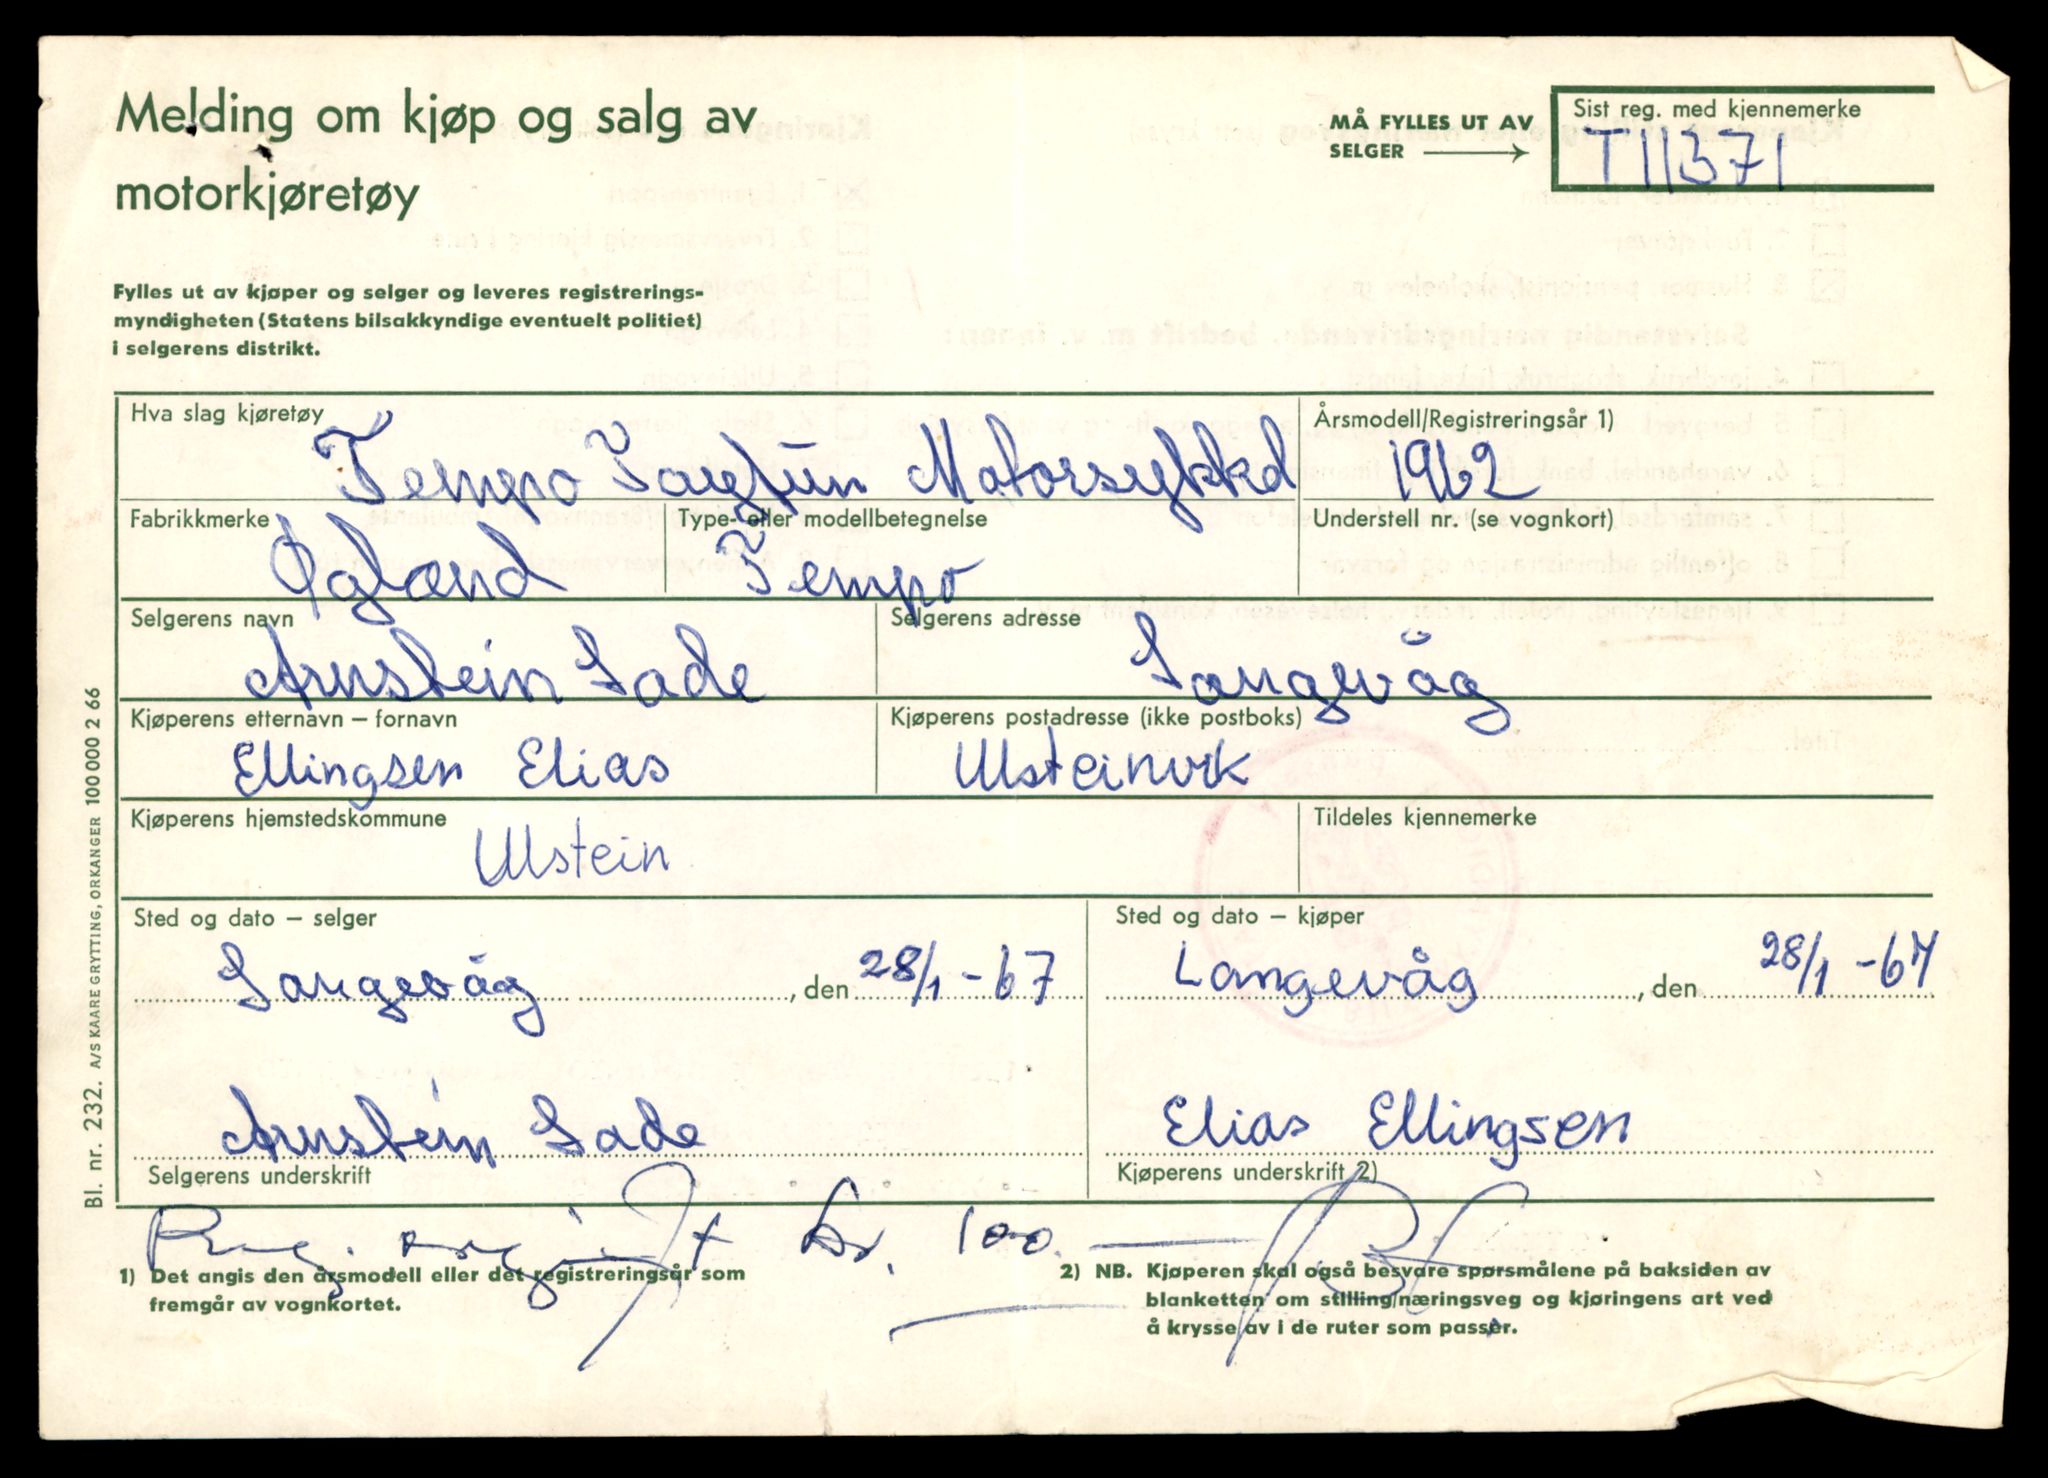 Melding om kjøp og salg av
motorkjøretøy
MÅ FYLLES UT AV
SELGER
Sist reg. med kjennemerke
T11371
Fylles ut av kjøper og selger og leveres registrerings-
myndigheten (Statens bilsakkyndige eventuelt politiet)
i selgerens distrikt.
Hva slag kjøretøy
Tempo Taifun Motorsykkel
Årsmodell/Registreringsår 1)
1962
Fabrikkmerke
Øgland
Type- eller modellbetegnelse
Tempo
Understell nr. (se vognkort)
Selgerens navn
Arnstein Lade
Selgerens adresse
Langevåg
Kjøperens etternavn – fornavn
Ellingsen Elias
Kjøperens postadresse (ikke postboks)
Ulsteinvik
Kjøperens hjemstedskommune
Ulstein
Tildeles kjennemerke
Sted og dato – selger
Langevåg, den 28/1 - 67
Sted og dato – kjøper
Langevåg, den 28/1 - 67
Arnstein Lade
Selgerens underskrift
Elias Ellingsen
Kjøperens underskrift 2)
Reg. avgift kr. 100.
1) Det angis den årsmodell eller det registreringsår som
fremgår av vognkortet.
2) NB. Kjøperen skal også besvare spørsmålene på baksiden av
blanketten om stilling/næringsveg og kjøringens art ved
å krysse av i de ruter som passer.
Bl. nr. 232. A/S KAARE GRYTTING, ORKANGER 100 000 2 66